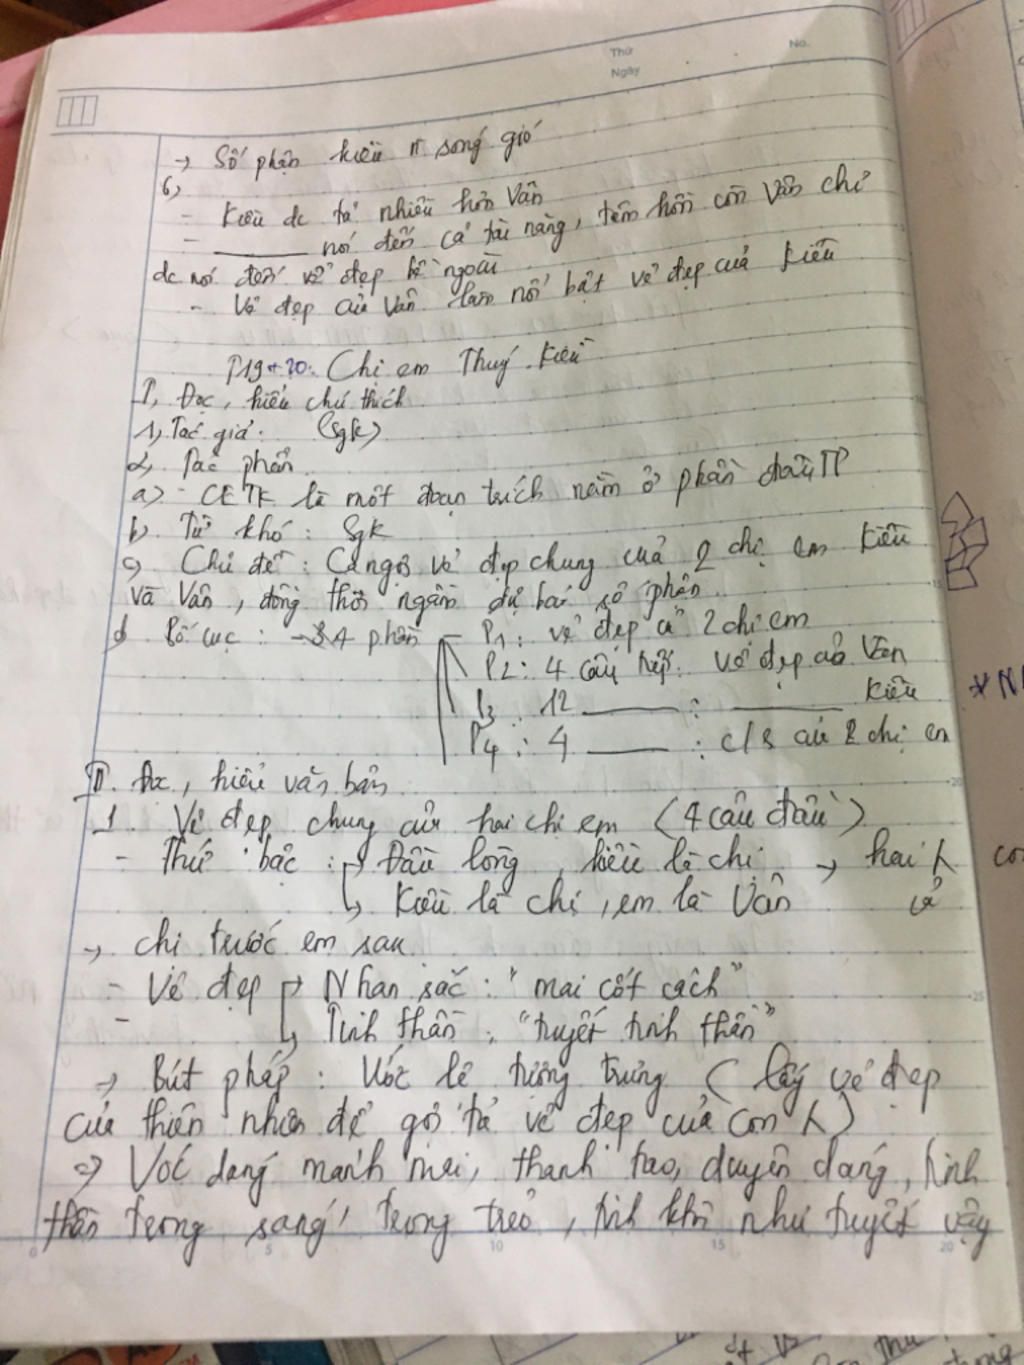 Thứ
No.
Ngày
→ Số phận kiều n sóng gió
6,
- Kiều đc tả nhiều hơn Vân
- ______ nói đến cả tài năng, tâm hồn còn Vân chỉ
đc nói đến vẻ đẹp bề ngoài
- Vẻ đẹp của Vân làm nổi bật vẻ đẹp của Kiều
P19+20: Chị em Thuý Kiều
I, Đọc, hiểu chú thích
1, Tác giả: (Sgk)
2, Tác phẩm
a) - CETK là một đoạn trích nằm ở phần đầu TP
b. Từ khó: Sgk
c) Chủ đề: Ca ngợi vẻ đẹp chung của 2 chị em Kiều
và Vân, đồng thời ngầm dự báo số phận
d Bố cục: → 4 phần P1: vẻ đẹp củ 2 chị em
P2: 4 câu tiếp: vẻ đẹp của Vân
P3: 12 ______ : ______ Kiều
P4: 4 ______ : c/s của 2 chị em
II. Đọc, hiểu văn bản
1. Vẻ đẹp chung của hai chị em (4 câu đầu)
- Thứ bậc: Đầu lòng, kiều là chị → hai
Kiều là chị, em là Vân
→ chị trước em sau
- Vẻ đẹp → Nhan sắc: "mai cốt cách"
- Tinh thần: "tuyết tinh thần"
→ Bút pháp: Ước lệ tượng trưng (lấy vẻ đẹp
của thiên nhiên để gợi tả vẻ đẹp của con
=> Vóc dáng mảnh mai, thanh tao, duyên dáng, tinh
thần trong sáng, trong trẻo, tinh khôi như tuyết vậy
5
10
15
20